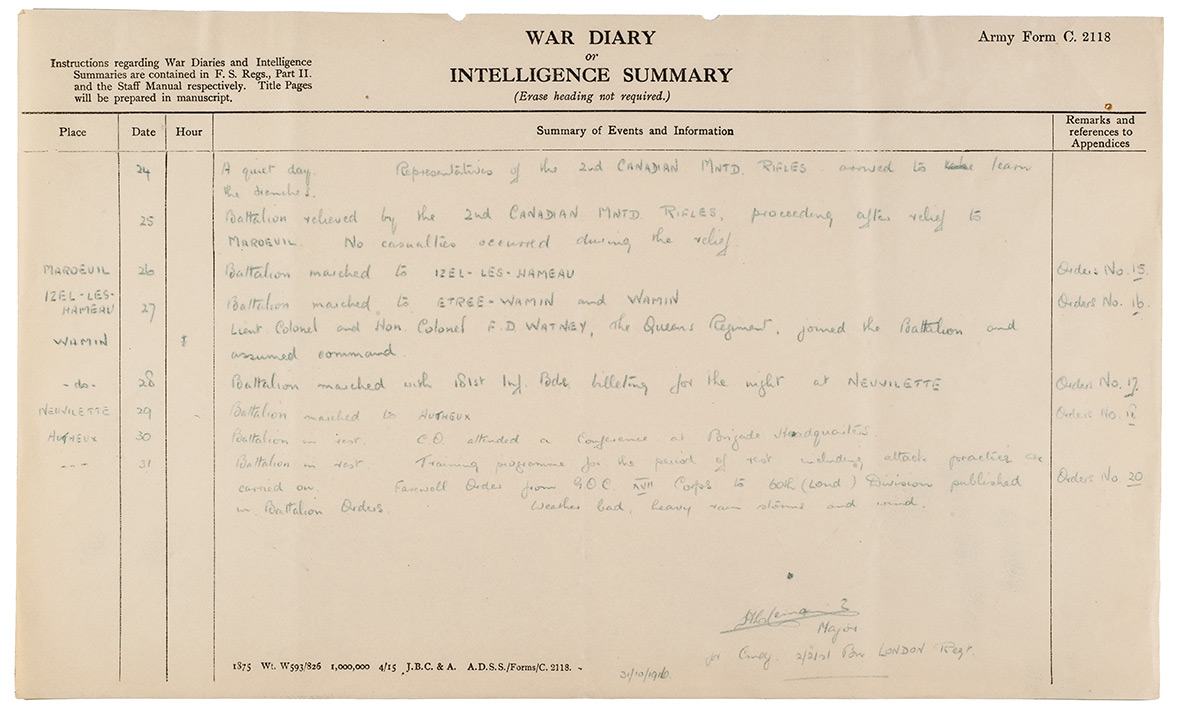 WAR DIARY
or
INTELLIGENCE SUMMARY
(Erase heading not required.)
Army Form C. 2118
Instructions regarding War Diaries and Intelligence
Summaries are contained in F. S. Regs., Part II.
and the Staff Manual respectively. Title Pages
will be prepared in manuscript.
Place Date Hour Summary of Events and Information Remarks and references to Appendices
24 A quiet day. Representatives of the 2nd CANADIAN MNTD. RIFLES arrived to learn
the trenches.
25 Battalion relieved by the 2nd CANADIAN MNTD RIFLES, proceeding after relief to
MAROEUIL. No casualties occurred during the relief.
MAROEUIL 26 Battalion marched to IZEL-LES-HAMEAU Orders No. 15.
IZEL-LES-HAMEAU 27 Battalion marched to ETREE-WAMIN and WAMIN Orders No. 16.
Lieut Colonel and Hon. Colonel F.D. WATNEY, The Queens Regiment, joined the Battalion and
WAMIN assumed command.
-do- 28 Battalion marched with 181st Inf. Bde billeting for the night at NEUVILETTE Orders No. 17.
NEUVILETTE 29 Battalion marched to AUTHEUX Orders No.
AUTHEUX 30 Battalion in rest. C.O. attended a Conference at Brigade Headquarters.
--- 31 Battalion in rest. Training programme for the period of rest including attack practice are
carried on. Farewell Order from GOC XVII Corps to 60th (Lond) Division published Orders No. 20
in Battalion Orders. Weather bad, heavy rain storms and wind.
Major
for Cmdg. 2/21st Bn LONDON Regt.
31/10/1916.
1875 Wt. W593/826 1,000,000 4/15 J.B.C. & A. A.D.S.S./Forms/C. 2118.